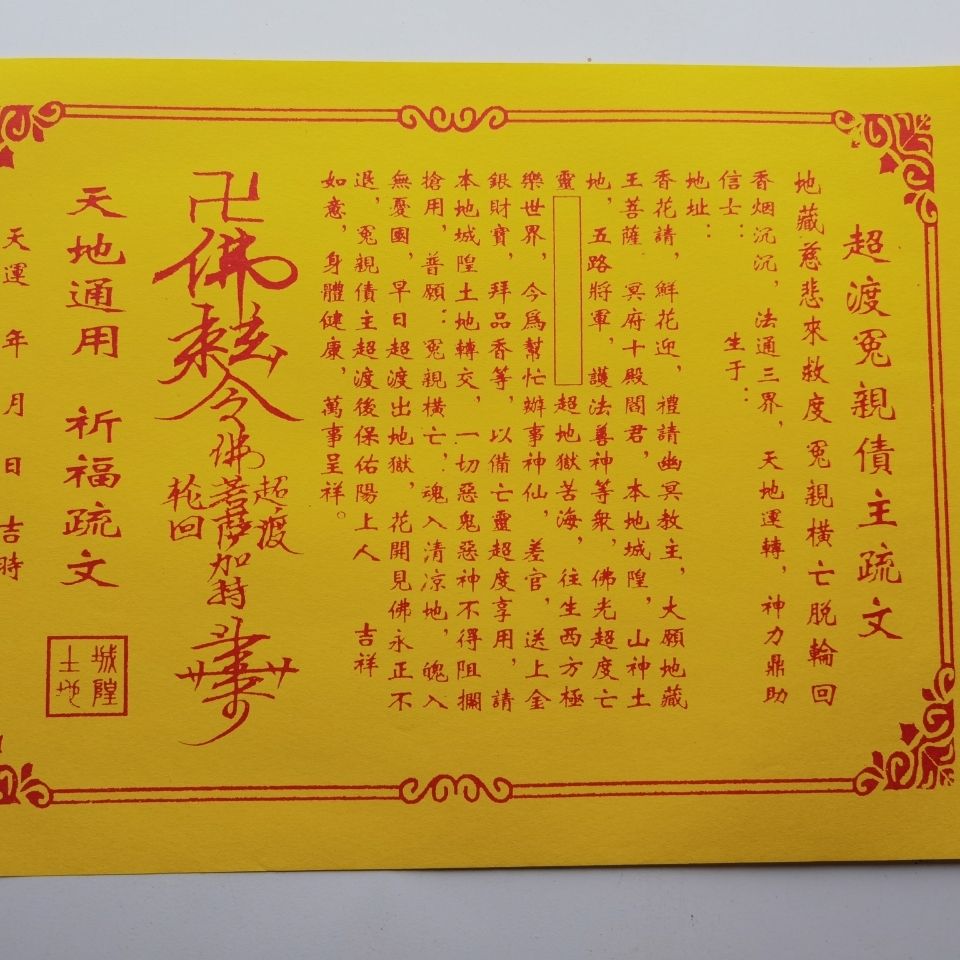 超渡冤親債主疏文
地藏慈悲來救度冤親橫亡脱輪回
香烟沉沉，法通三界，天地運轉，神力鼎助
信士：　生于：
地址：
香花請，鮮花迎，禮請幽冥教主，大願地藏
王菩薩，冥府十殿閻君，本地城隍，山神土
地，五路將軍，護法善神等衆，佛光超度亡
靈　超地獄苦海，往生西方極
樂世界，今爲幫忙辦事神仙，差官，送上金
銀財寶，拜品香等，以備亡靈超度享用，請
本地城隍土地轉交，一切惡鬼惡神不得阻攔
搶用，普願：冤親橫亡，魂入清凉地，魄入
無憂國，早日超渡出地獄，花開見佛永正不
退，冤親債主超渡後保佑陽上人　吉祥
如意，身體健康，萬事呈祥。
卍
佛
令
佛
超渡
菩薩
轮回
加持
天地通用　祈福疏文
城隍
土地
天運　年　月　日　吉時